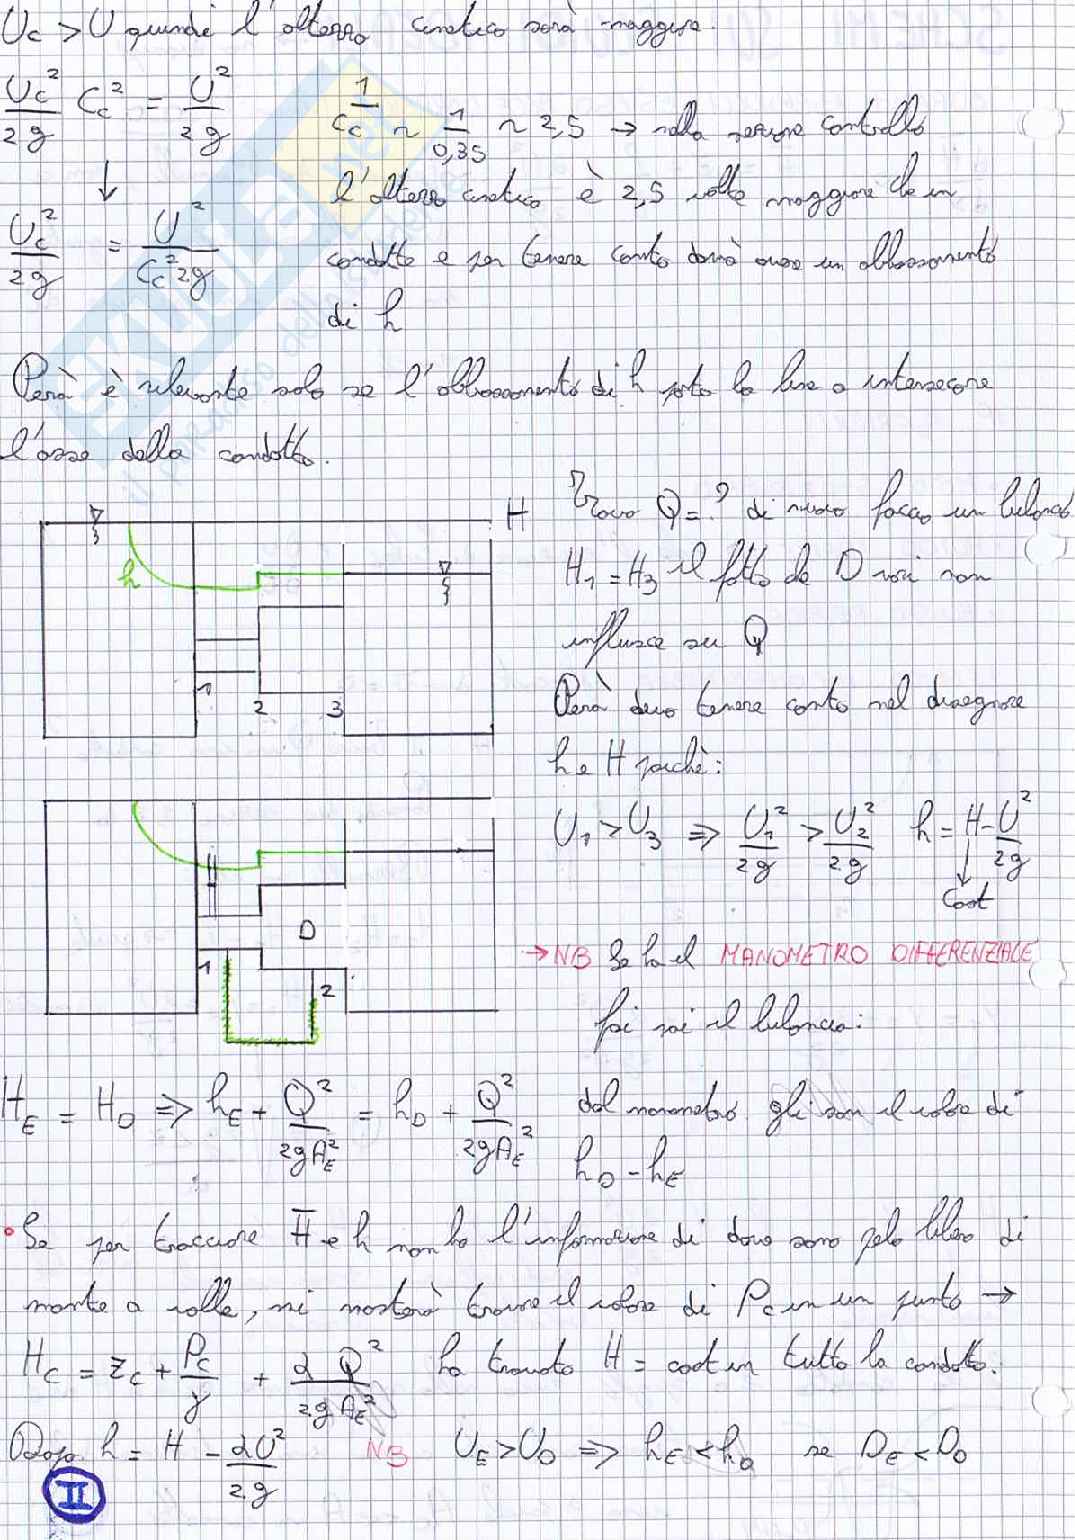 Uc > U quindi l'altezza cinetica sarà maggiore.
Uc²/2g Cc² = U²/2g
1/Cc ~ 1/0,35 ~ 2,5 → nella sezione contratta
↓
l'altezza cinetica è 2,5 volte maggiore che in
Uc²/2g = U²/Cc²2g
condotta e per tenere conto dovrò avere un abbassamento
di h
Però è rilevante solo se l'abbassamento di h porta la linea a intersecare
l'asse della condotta.
H
h
1
2
3
Trovo Q=? di nuovo faccio un bilancio
H₁ = H₃ il fatto che D vari non
influisce su Q
Però devo tenere conto nel disegnare
h e H poichè:
U₁ > U₃ ⇒ U₁²/2g > U₂²/2g h = H - U²/2g
↓
cost
D
1
2
→ NB Se ho il MANOMETRO DIFFERENZIALE
fai il bilancio:
H_E = H_D ⇒ h_E + Q²/2gA_E² = h_D + Q²/2gA_E²
dal manometro gli il valore di
h_D - h_E
• Se per tracciare H e h non ho l'informazione di dove sono pelo libero di
monte a valle, mi basterà trovare il valore di Pc in un punto →
H_C = z_C + P_C/γ + αQ²/2gA_E² ho trovato H = cost in tutta la condotta.
Dopo h = H - αU²/2g NB U_E > U_D ⇒ h_E < h_D se D_E < D_D
II